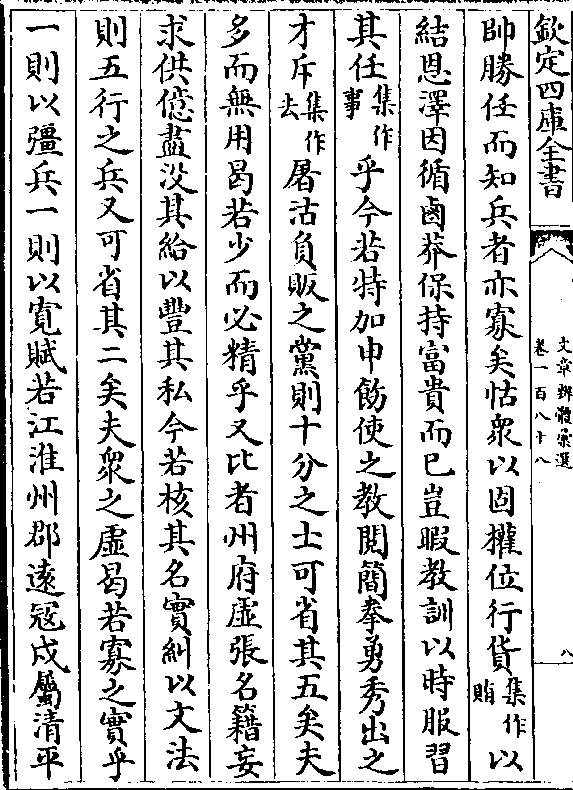 欽定四庫全書
文章辨體彙選
卷一百八十八
八
帥勝任而知兵者亦寡矣怙衆以固權位行貨集作賄以
結恩澤因循鹵莽保持富貴而已豈暇教訓以時服習
其任集作事乎今若特加申飭使之教閱簡拳勇秀出之
才斥集作去屠沽負販之黨則十分之士可省其五矣夫
多而無用曷若少而必精乎又比者州府虛張名籍妄
求供億盡没其給以豐其私今若核其名實糾以文法
則五行之兵又可省其二矣夫衆之虛曷若寡之實乎
一則以彊兵一則以寛賦若江淮州郡遠寇戍屬清平